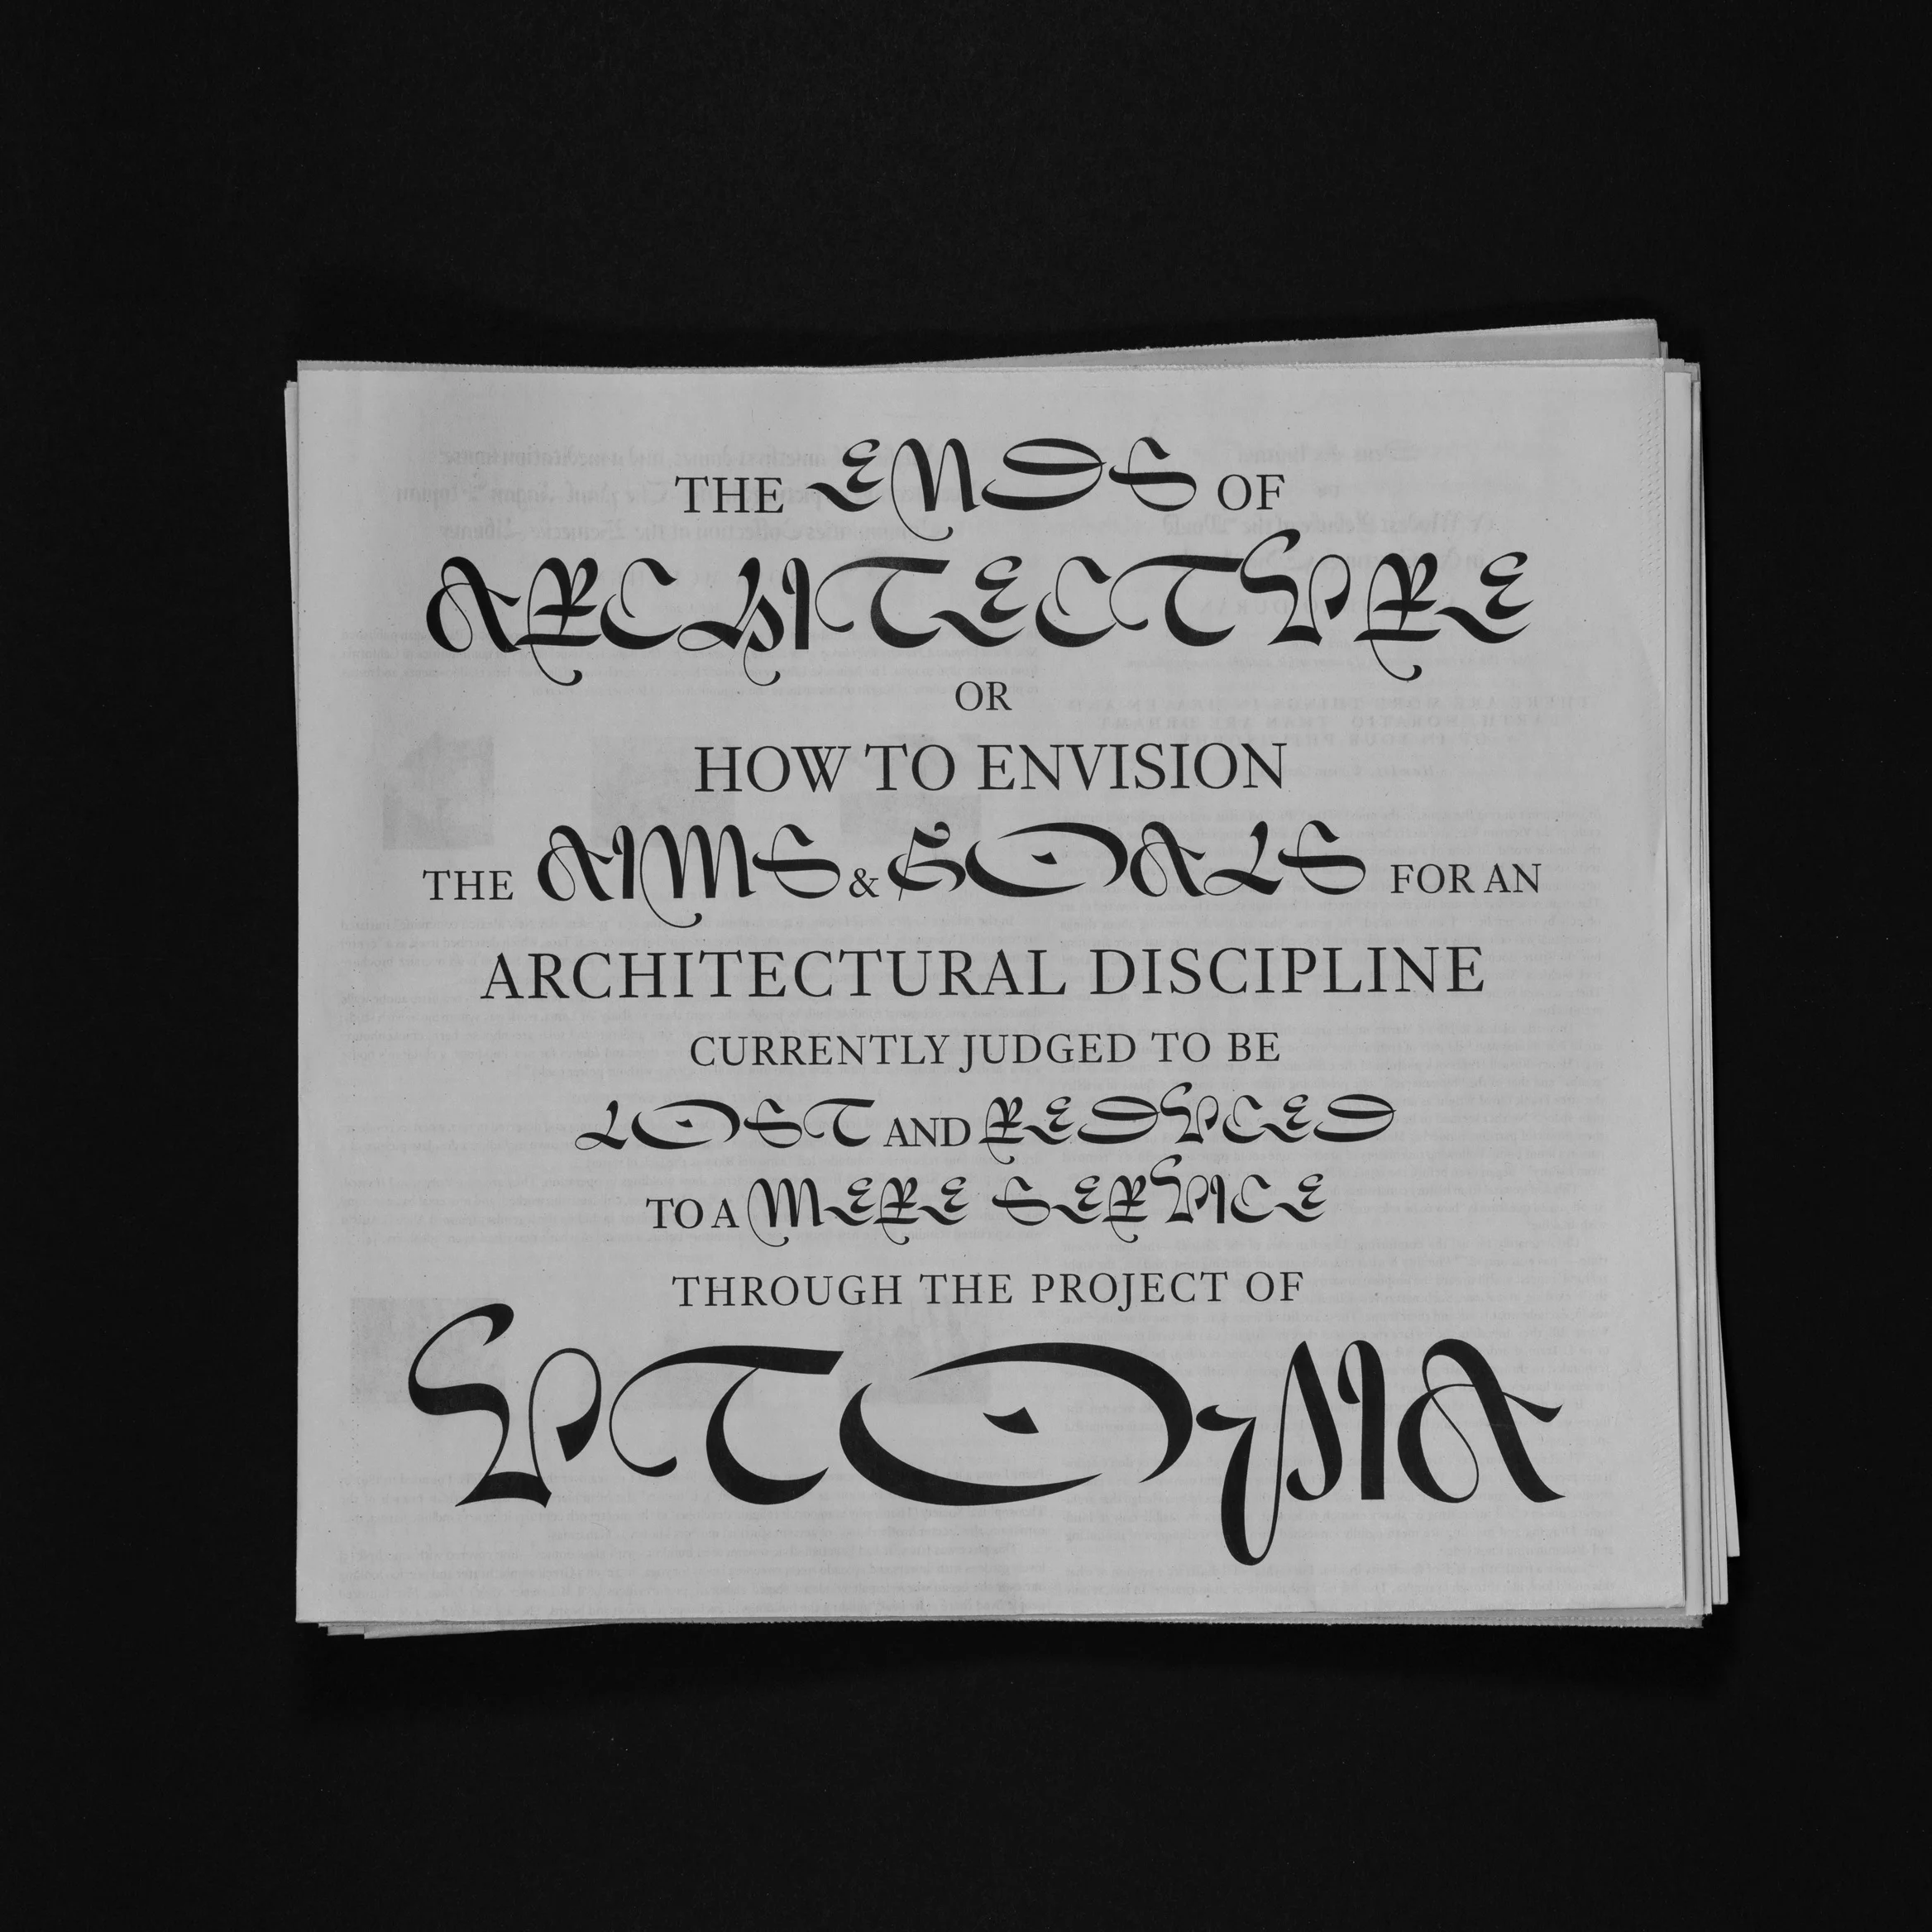 THE ENDS OF
ARCHITECTURE
OR
HOW TO ENVISION
THE AIMS & GOALS FOR AN
ARCHITECTURAL DISCIPLINE
CURRENTLY JUDGED TO BE
LOST AND REDUCED
TO A MERE SERVICE
THROUGH THE PROJECT OF
UTOPIA